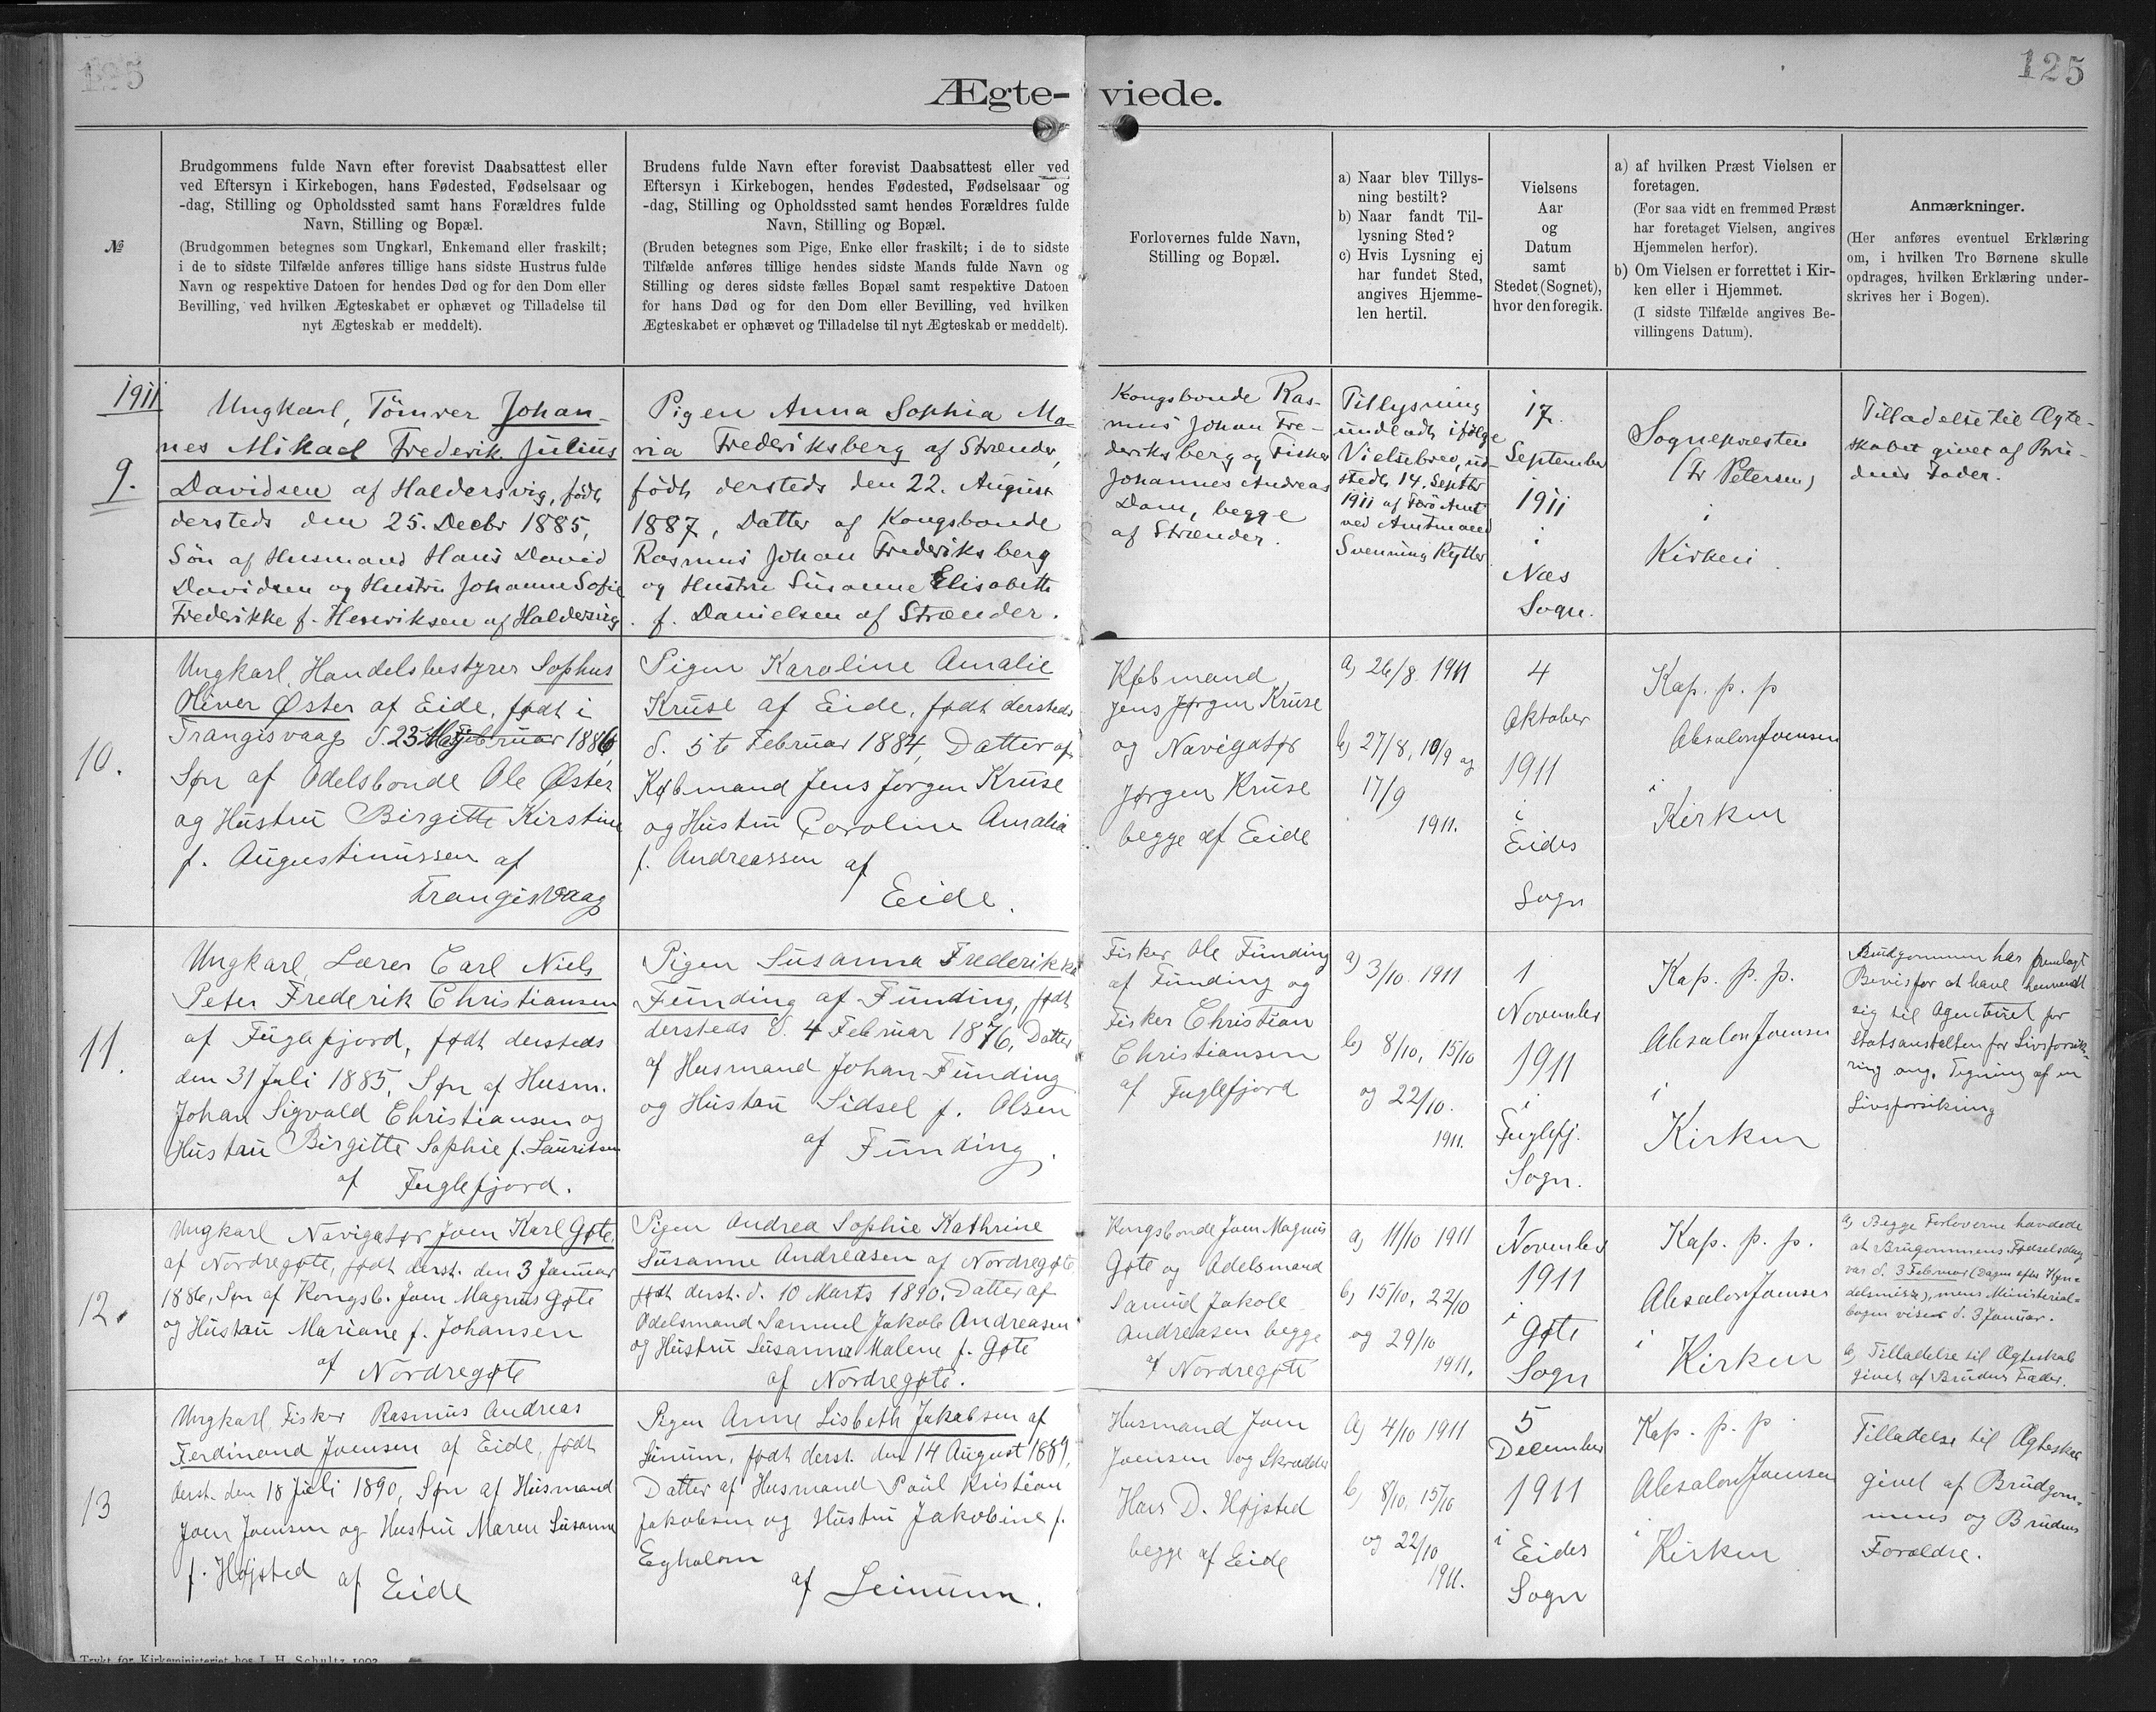 125
125
Ægte-viede.
№
Brudgommens fulde Navn efter forevist Daabsattest eller
ved Eftersyn i Kirkebogen, hans Fødested, Fødselsaar og
-dag, Stilling og Opholdssted samt hans Forældres fulde
Navn, Stilling og Bopæl.
(Brudgommen betegnes som Ungkarl, Enkemand eller fraskilt;
i de to sidste Tilfælde anføres tillige hans sidste Hustrus fulde
Navn og respektive Datoen for hendes Død og for den Dom eller
Bevilling, ved hvilken Ægteskabet er ophævet og Tilladelse til
nyt Ægteskab er meddelt).
Brudens fulde Navn efter forevist Daabsattest eller ved
Eftersyn i Kirkebogen, hendes Fødested, Fødselsaar og
-dag, Stilling og Opholdssted samt hendes Forældres fulde
Navn, Stilling og Bopæl.
(Bruden betegnes som Pige, Enke eller fraskilt; i de to sidste
Tilfælde anføres tillige hendes sidste Mands fulde Navn og
Stilling og deres sidste fælles Bopæl samt respektive Datoen
for hans Død og for den Dom eller Bevilling, ved hvilken
Ægteskabet er ophævet og Tilladelse til nyt Ægteskab er meddelt).
Forlovernes fulde Navn,
Stilling og Bopæl.
a) Naar blev Tillys-
ning bestilt?
b) Naar fandt Til-
lysning Sted?
c) Hvis Lysning ej
har fundet Sted,
angives Hjemme-
len hertil.
Vielsens
Aar
og
Datum
samt
Stedet (Sognet),
hvor den foregik.
a) af hvilken Præst Vielsen er
foretagen.
(For saa vidt en fremmed Præst
har foretaget Vielsen, angives
Hjemmelen herfor).
b) Om Vielsen er forrettet i Kir-
ken eller i Hjemmet.
(I sidste Tilfælde angives Be-
villingens Datum).
Anmærkninger.
(Her anføres eventuel Erklæring
om, i hvilken Tro Børnene skulle
opdrages, hvilken Erklæring under-
skrives her i Bogen).
1911
9.
Ungkarl, Tömrer Johan-
nes Mikael Frederik Julius
Davidsen af Haldersvig, født
dersteds den 25. Decbr 1885,
Sön af Husmand Hans David
Davidsen og Hustru Johanne Sofie
Frederikke f. Henriksen af Haldersvig.
Pigen Anna Sophia Ma-
ria Frederiksberg af Strænder,
födt dersteds den 22. August
1887, Datter af Kongsbonde
Rasmus Johan Frederiksberg
og Hustru Susanne Elisabeth
f. Danielsen af Strænder.
Kongsbonde Ras-
mus Johan Fre-
deriksberg og Fisker
Johannes Andreas
Dam, begge
af Strænder.
Tillysning
undladt ifølge
Vielsebrev, ud-
stedt 14. Septbr
1911 af Færö Amt
ved Amtmand
Svenning Rytter
17.
September
1911
i
Næs
Sogn.
Sognepræsten
(Fr Petersen)
i
Kirken.
Tilladelse til Ægte-
skabet givet af Bru-
dens Fader.
10.
Ungkarl, Handelsbestyrer Sophus
Oliver Øster af Eide, født i
Trangisvaag d. 23 Maj Februar 1886,
Søn af Odelsbonde Ole Øster
og Hustru Birgitte Kirstine
f. Augustinussen af
Trangisvaag
Pigen Karoline Amalie
Kruse af Eide, født dersteds
d. 5te Februar 1884, Datter af
Købmand Jens Jørgen Kruse
og Hustru Caroline Amalia
f. Andreassen af
Eide.
Købmand
Jens Jørgen Kruse
og Navigatør
Jørgen Kruse
begge af Eide
a) 26/8 1911
b) 27/8, 10/9 og
17/9
1911.
4
Oktober
1911
i
Eides
Sogn
Kap. p. p
Absalon Joensen
i
Kirken
11.
Ungkarl, Lærer Carl Niels
Peter Frederik Christiansen
af Fuglefjord, født dersteds
den 31 Juli 1885, Søn af Husm.
Johan Sigvald Christiansen og
Hustru Birgitte Sophie f. Lauritsen
af Fuglefjord.
Pigen Susanna Frederikka
Funding af Funding, født
dersteds d. 4 Februar 1876, Datter
af Husmand Johan Funding
og Hustru Sidsel f. Olsen
af Funding.
Fisker Ole Funding
af Funding og
Fisker Christian
Christiansen
af Fuglefjord
a) 3/10 1911
b) 8/10, 15/10
og 22/10.
1911.
1
November
1911
i
Fuglefj.
Sogn.
Kap. p. p.
Absalon Joensen
i
Kirken
Brudgommen har fremlagt
Bevis for at have henvendt
sig til Agenturet for
Statsanstalten for Livsforsik-
ring ang. Tegning af en
Livsforsikring
12.
Ungkarl Navigatør Joen Karl Gøte
af Nordregøte, født derst. den 3 Januar
1886, Søn af Kongsb. Joen Magnus Gøte
og Hustru Mariane f. Johansen
af Nordregøte
Pigen Andrea Sophie Kathrine
Susanne Andreasen af Nordregøte
født derst. d. 10 Marts 1890. Datter af
Odelsmand Samuel Jakob Andreasen
og Hustru Susanna Malene f. Gøte
af Nordregøte.
Kongsbonde Joen Magnus
Gøte og Odelsmand
Samuel Jakob
Andreasen begge
af Nordregøte
a) 11/10 1911
b) 15/10, 22/10
og 29/10
1911.
1
November
1911
i
Gøte
Sogn
Kap. p. p.
Absalon Joensen
i
Kirken
a) Begge Forloverne havdede
at Brugommens Fødselsdag
var d. 3 Februar (Dagen efter Kyn-
delsmisse), mens Ministerial-
bogen viser d. 3 Januar.
b) Tilladelse til Ægteskab
givet af Brudens Fader.
13
Ungkarl Fisker Rasmus Andreas
Ferdinand Joensen af Eide, født
derst. den 18 Juli 1890, Søn af Husmand
Joen Joensen og Hustru Maren Susanne
f. Højsted af Eide
Pigen Anne Lisbeth Jakobsen af
Leinum, født derst. den 14 August 1889,
Datter af Husmand Poul Kristian
Jakobsen og Hustru Jakobine f.
Egholm
af Leinum.
Husmand Joen
Joensen og Skrædder
Hans D. Højsted
begge af Eide
a) 4/10 1911
b) 8/10, 15/10
og 22/10
1911.
5
December
1911
i Eides
Sogn
Kap. p. p.
Absalon Joensen
i Kirken
Tilladelse til Ægteskab
givet af Brudgom-
mens og Brudens
Forældre.
Trykt for Kirkeministeriet hos J. H. Schultz 1903